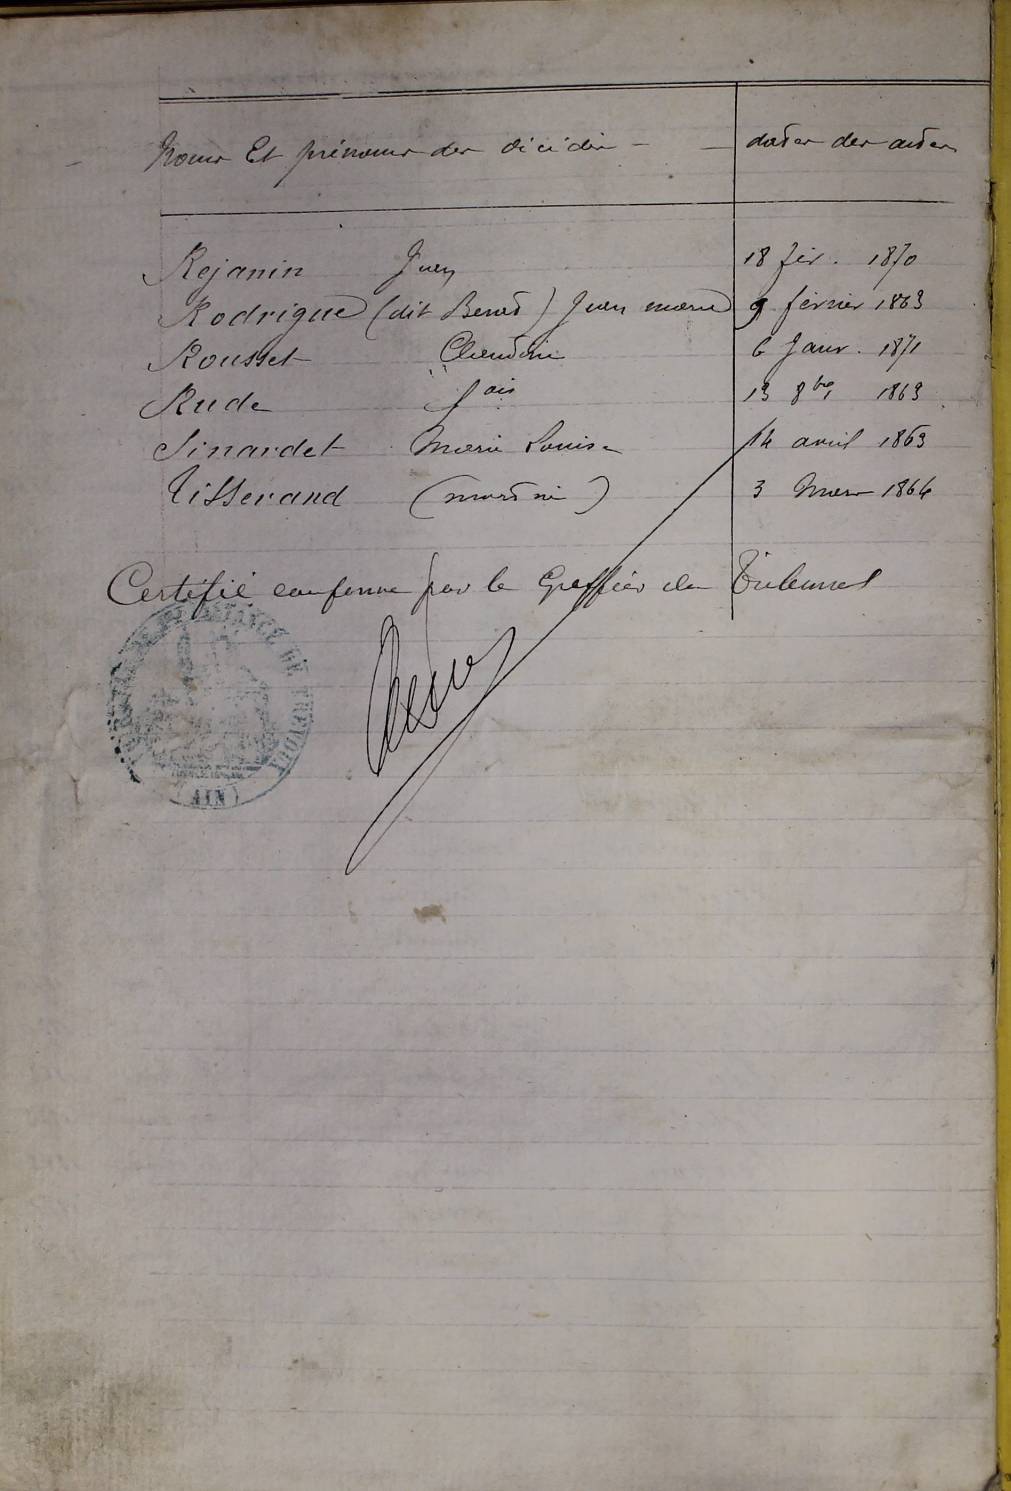 Noms Et prénoms des décédés - - dates des actes
Rejanin Jean 18 fév. 1870
Rodrigue (dit Benoit) Jean marie 9 février 1863
Rousset Claudine 6 Janv. 1871
Rude fois 13 8bre 1863
Sinardet Marie Louise 14 avril 1863
Tisserand (mort né) 3 Mars 1864
Certifié conforme par le Greffier du Tribunal
INSTANCE DE TREVOUX
(AIN)